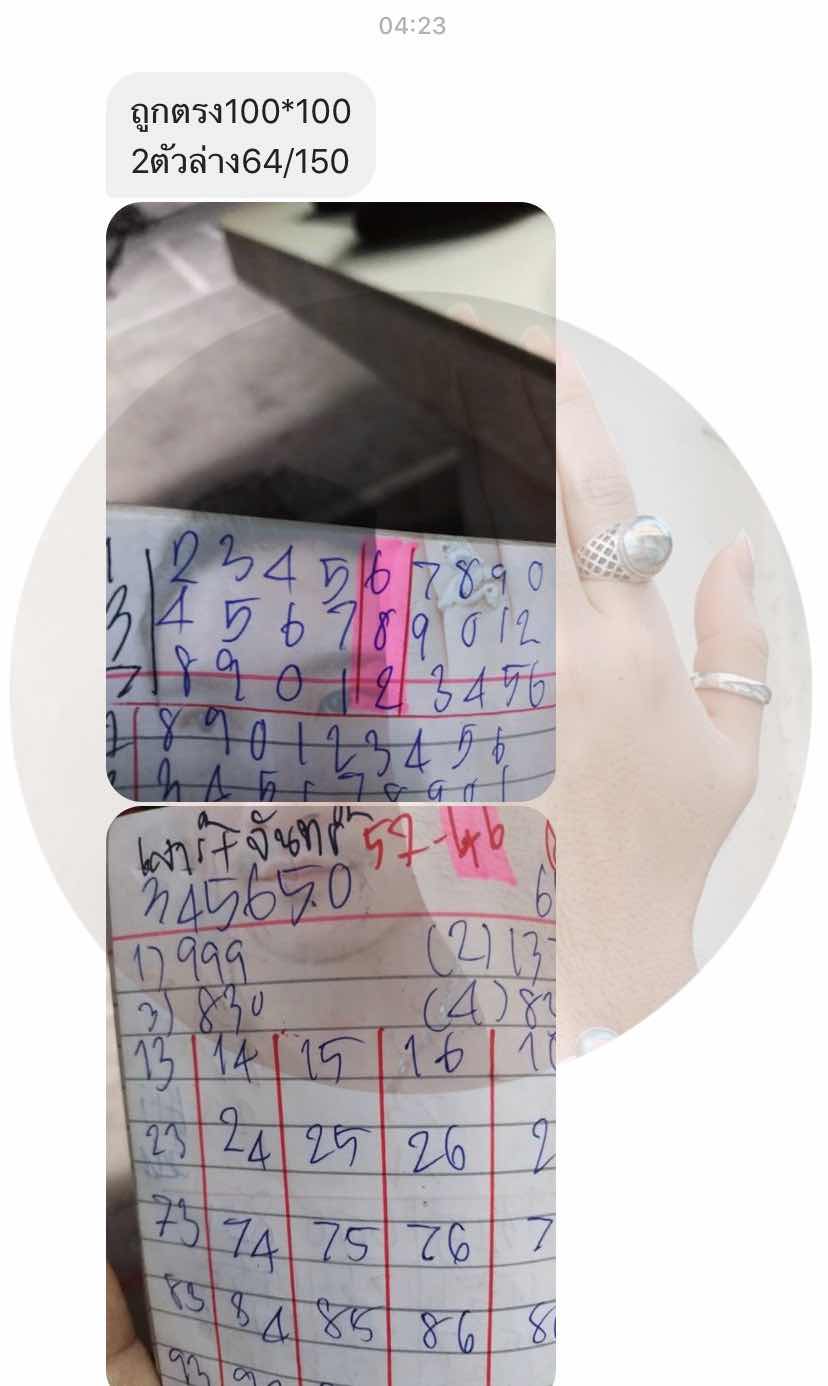 04:23
ถูกตรง100*100
2ตัวล่าง64/150
1 2 3 4 5 6 7 8 9 0
3 4 5 6 7 8 9 0 1 2
7 8 9 0 1 2 3 4 5 6
7 8 9 0 1 2 3 4 5 6
3 4 5 6 7 8 9 0 1
เสาร์+จันทร์ 57-46
345650 6
1) 999 (2) 13
3) 830 (4) 82
13 14 15 16 1
23 24 25 26 2
73 74 75 76 7
83 84 85 86 8
93